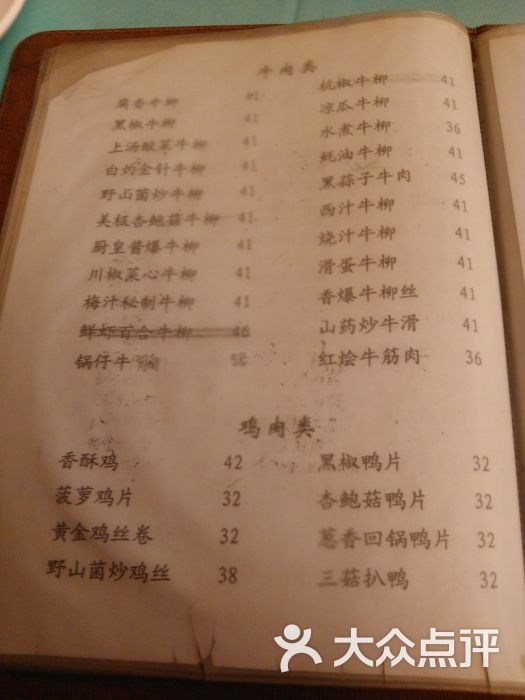 牛肉类
腐香牛柳 41
黑椒牛柳 41
上汤酸菜牛柳 41
白灼金针牛柳 41
野山菌炒牛柳 41
美极杏鲍菇牛柳 41
厨皇酱爆牛柳 41
川椒菜心牛柳 41
梅汁秘制牛柳 41
鲜虾百合牛柳 46
锅仔牛 58
杭椒牛柳 41
凉瓜牛柳 41
水煮牛柳 36
蚝油牛柳 41
黑蒜子牛肉 45
西汁牛柳 41
烧汁牛柳 41
滑蛋牛柳 41
香爆牛柳丝 41
山药炒牛滑 41
红烩牛筋肉 36
鸡肉类
香酥鸡 42
菠萝鸡片 32
黄金鸡丝卷 32
野山菌炒鸡丝 38
黑椒鸭片 32
杏鲍菇鸭片 32
葱香回锅鸭片 32
三菇扒鸭 32
大众点评